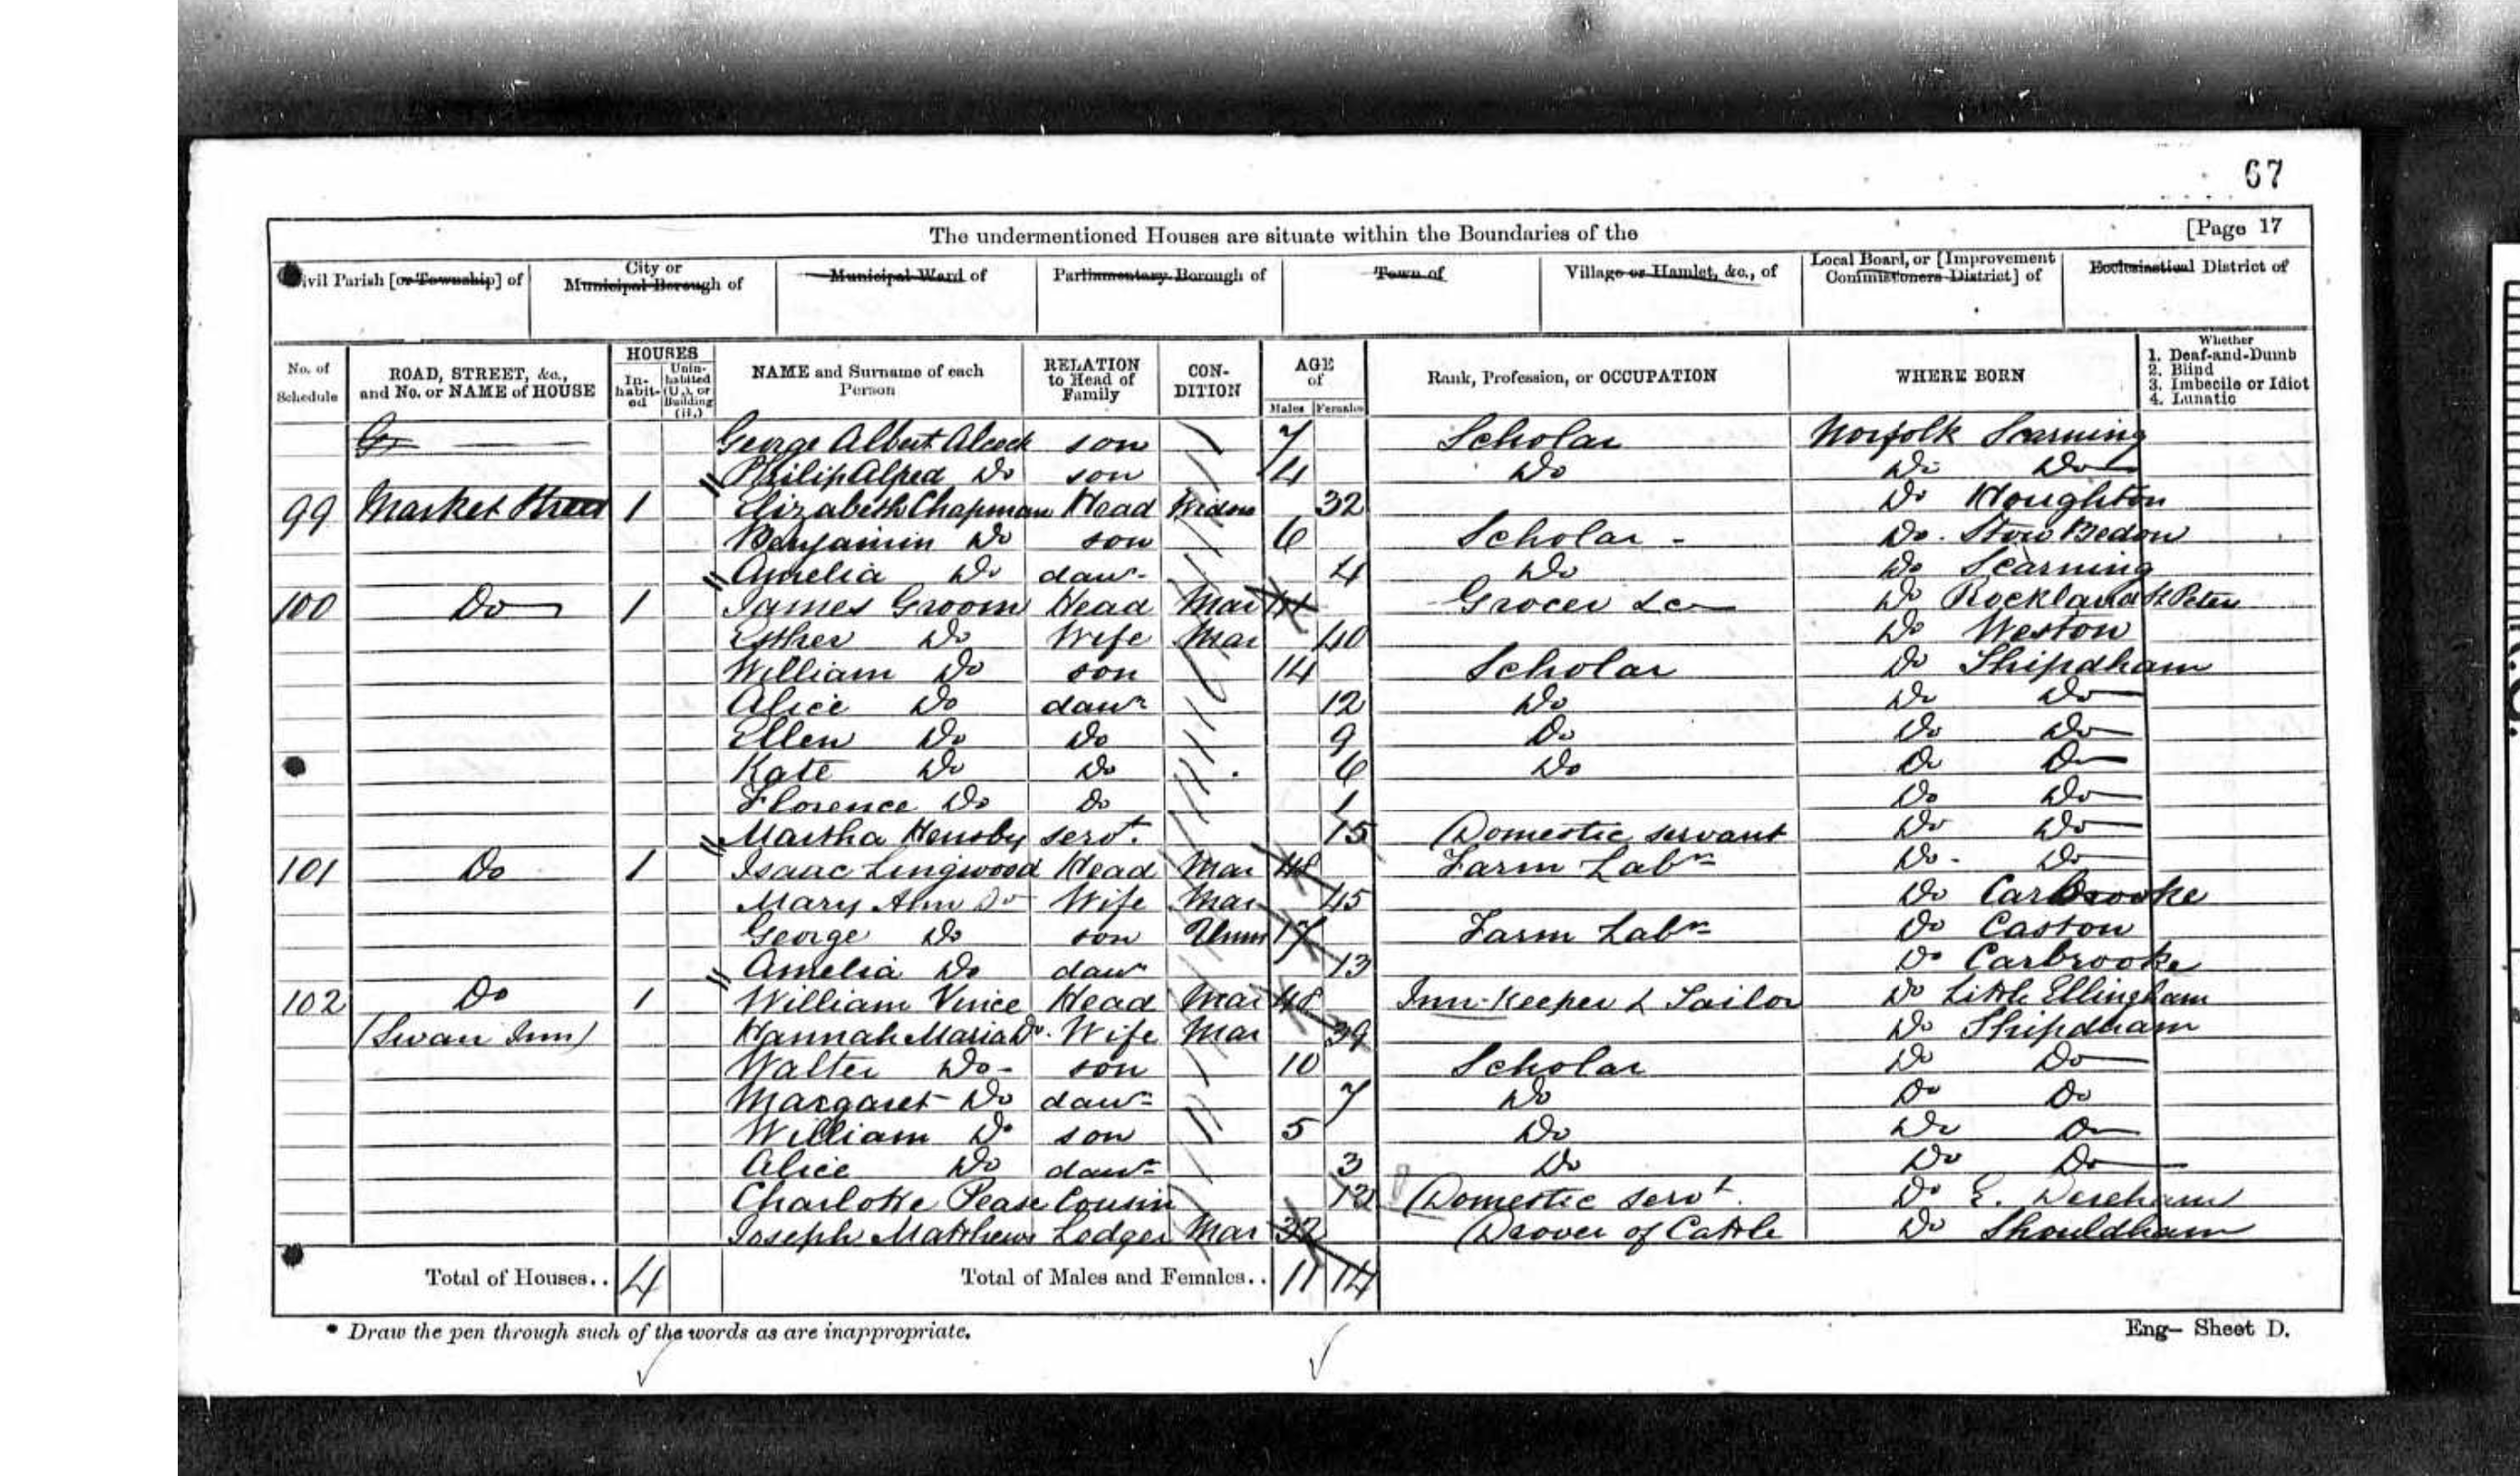 67
The undermentioned Houses are situate within the Boundaries of the [Page 17
Civil Parish [or Township] of City or Municipal Borough of Municipal Ward of Parliamentary Borough of Town of Village or Hamlet, &c., of Local Board, or [Improvement Commissioners District] of Ecclesiastical District of
No. of Schedule ROAD, STREET, &c., and No. or NAME of HOUSE HOUSES In-habit-ed Unin-habited (U.), or Building (B.) NAME and Surname of each Person RELATION to Head of Family CON-DITION AGE of Males Females Rank, Profession, or OCCUPATION WHERE BORN Whether 1. Deaf-and-Dumb 2. Blind 3. Imbecile or Idiot 4. Lunatic
George Albert Alcock son 7 Scholar Norfolk Scarning
Philip Alfred Do son 4 Do Do Do
99 Market Street 1 Elizabeth Chapman Head Widow 32 Do Houghton
Benjamin Do son 6 Scholar - Do. Stow Bedon
Amelia Do daur. 4 Do Do Scarning
100 Do 1 James Groom Head Mar 41 Grocer &c Do Rockland St Peter
Esther Do Wife Mar 40 Do Weston
William Do son 14 Scholar Do Shipdham
Alice Do daur 12 Do Do Do
Ellen Do Do 9 Do Do Do
Kate Do Do 6 Do Do Do
Florence Do Do 1 Do Do
Martha Hensby servt. 15 Domestic servant Do Do
101 Do 1 Isaac Lingwood Head Mar 48 Farm Labr Do - Do
Mary Ann Do Wife Mar 45 Do Carbrooke
George Do son Unm 17 Farm Labr Do Caston
Amelia Do daur 13 Do Carbrooke
102 Do 1 William Vince Head Mar 48 Inn-Keeper & Tailor Do Little Ellingham
(Swan Inn) Hannah Maria Do. Wife Mar 39 Do Shipdham
Walter Do - son 10 Scholar Do Do
Margaret Do daur 7 Do Do Do
William Do son 5 Do Do Do
Alice Do daur 3 Do Do Do
Charlotte Pease Cousin 12 Domestic servt. Do E. Dereham
Joseph Matthews Lodger Mar 32 Drover of Cattle Do Shouldham
Total of Houses.. 4 Total of Males and Females.. 11 14
* Draw the pen through such of the words as are inappropriate. Eng— Sheet D.